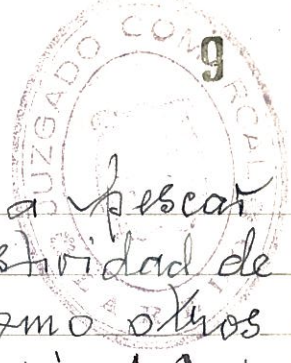 9
JUZGADO COMARCAL
a pescar
stividad de
omo otros